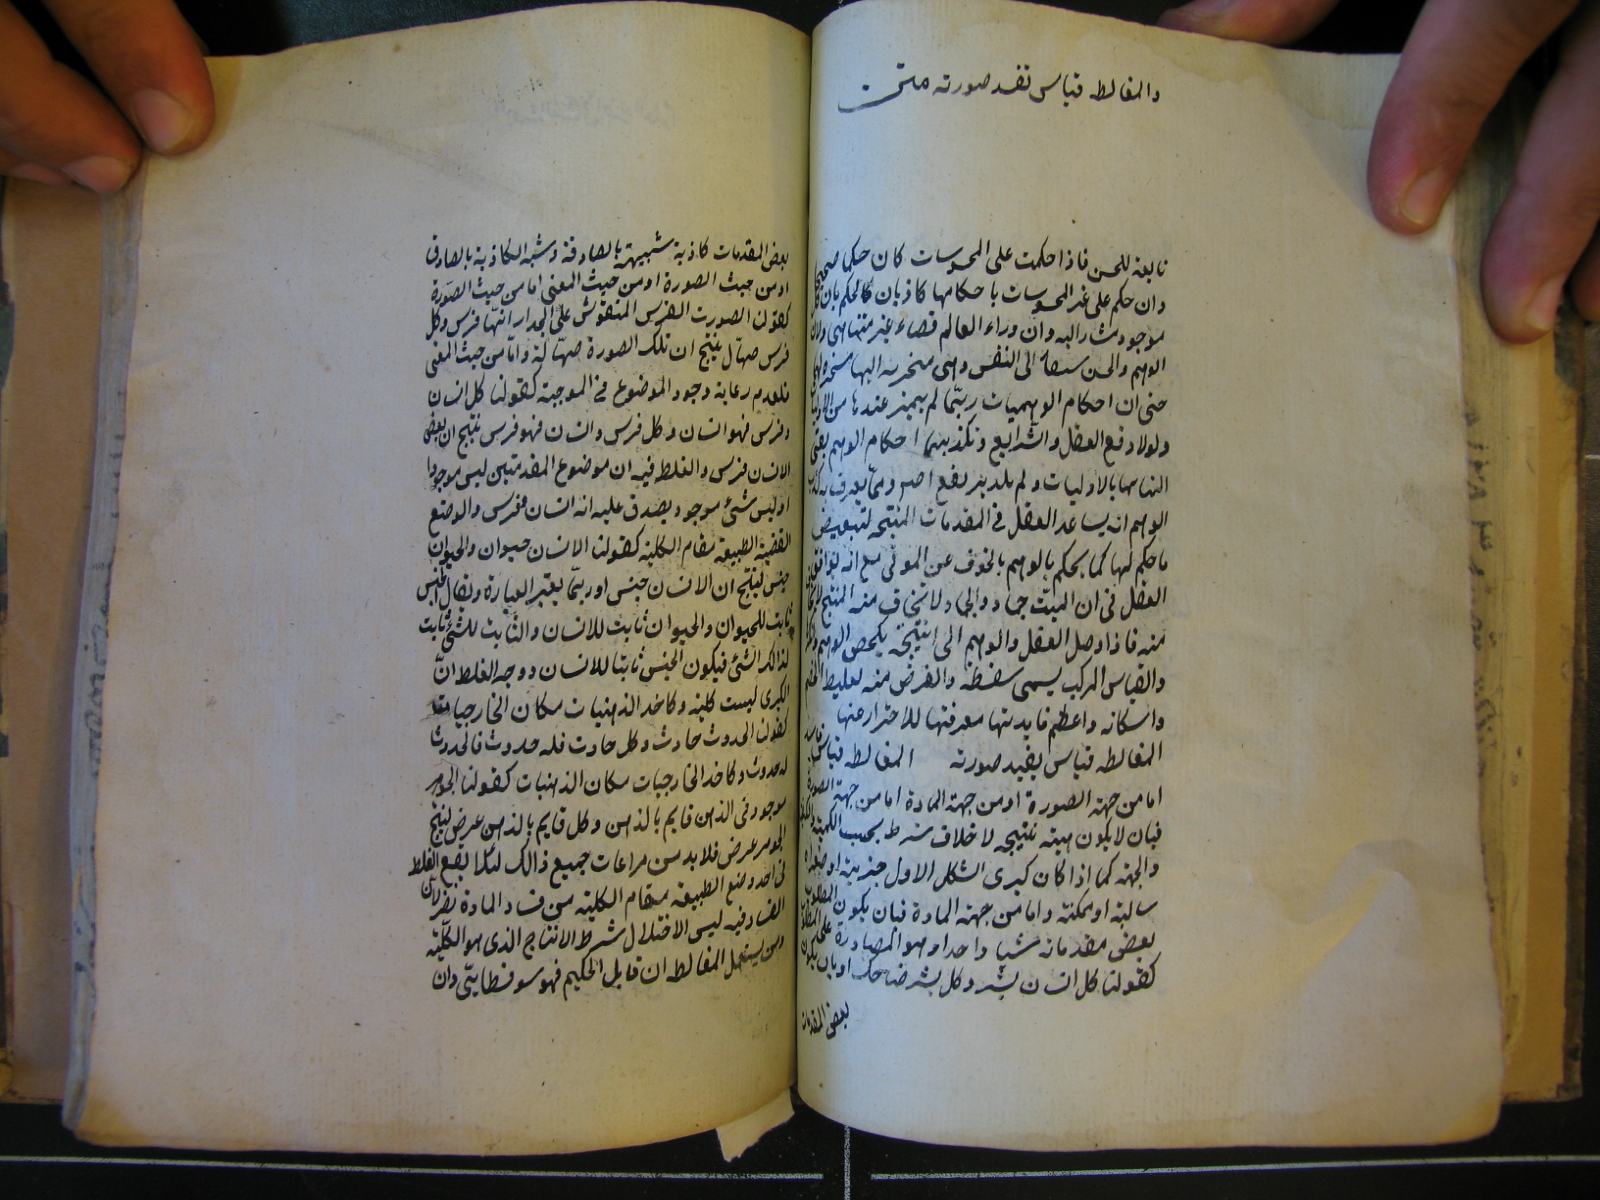 والمغالطه قياس تفسد صورته متن
تابعة للحس فاذا حكمت على المحسوسات كان حكما صحيحا
وان حكم على غير المحسوسات باحكامها كاذبان كالحكم بان كل
موجود مشار اليه وان وراء العالم فضاء غير متناهى ولان
الوهم والحس الى النفس وهى منخربه اليها مسخرة لهما
حتى ان احكام الوهميات ربّما لم يميز عندها من الاوليات
ولولا دفع العقل والشرايع وتكذيبهما احكام الوهم بقى
التباسها بالاوليات ولم يكد يرتفع اصلا وممّا يعرف به كذب
الوهم انه يساعد العقل فى المقدمات المنتجه لنقيض
ما حكم لها كما يحكم بالوهم بالخوف عن الموتى مع انه يوافق
العقل فى ان الميّت جماد والجماد لا يخاف منه المنتج
منه فاذا وصل العقل والوهم الى النتيجة الوهم
والقياس المركب يسمى سفسطه والغرض منه تغليط الخصم
واسكاته واعظم فايدتها معرفتها للاحترار عنها
المغالطه قياس يفيد صورته المغالطه قياس فاسد
اما من جهة الصورة او من جهة المادة اما من جهة الصورة
فبان لا يكون هيئه نتيجه لاختلاف شرط بحسب الكمية والكيفية
والجهة كما اذا كان كبرى الشكل الاول جزيية او صغراه
سالبة او ممكنة واما من جهة المادة فبان يكون المطلوب
بعض مقدماته شيا واحدا وهو المصادرة على المطلوب
كقولنا كل انسان بشر وكل بشر ضاحك او بان يكون
بعض المقدمات
بعض المقدمات كاذبة شبيهة بالصادقة وشبه الكاذبة بالصادق
او من حيث الصورة او من حيث المعنى اما من حيث الصورة
كقولنا لصورت الفرس المنقوش على الجدار انتها فرس وكل
فرس صهّال ينتج ان تلك الصورة صهّالة وامّا من حيث المعنى
فلعدم رعاية وجود الموضوع فى الموجبة كقولنا كل انسان
وفرس فهو انسان وكل فرس وانسان فهو فرس ينتج ان بعض
الانسان فرس والغلط فيه ان موضوع المقدمتين ليس موجودا
اوليس شئ موجود يصدق عليه انه انسان وفرس والوضع
القضية الطبيعة مقام الكلية كقولنا الانسان حيوان والحيوان
جنس ينتج ان الانسان جنس او ربّما يغير العبارة ويقال الجنس
ثابت للحيوان والحيوان ثابت للانسان والثابت للشئ ثابت
لذالك الشئ فيكون الجنس ثابتا للانسان ووجه الغلط انّ
الكبرى ليست كلية وكاخد الذهنيات مكان الخارجيات
كقولنا الحدوث حادث وكل حادث فله حدوث فالحدوث
له حدوث وكاخد الخارجيات مكان الذهنيات كقولنا الجوهر
موجود فى الذهن قايم بالذهن وكل قايم بالذهن عرض لينتج
الجوهر عرض فلا بد من مراعات جميع ذالك لئلا يقع الغلط
فى اخد وضع الطبيعة مقام الكلية من فساد المادة نظر لان
الفساد فيه ليس الا اختلال شرط الانتاج الذى هو الكلّية
ومن يستعمل المغالطه ان قابل الحكيم فهو سوفسطايّى وان